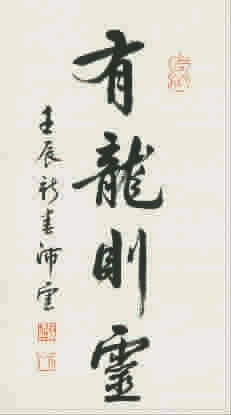 有龍則靈
壬辰新春沛雲